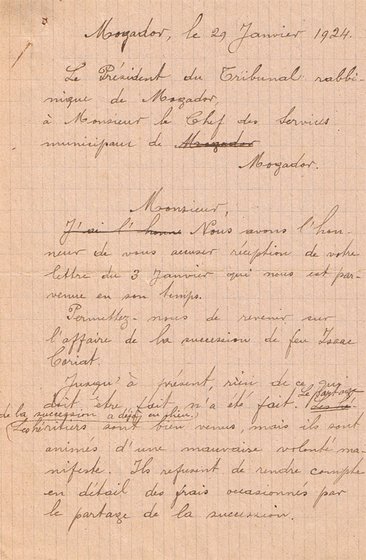 Mogador, le 29 Janvier 1924.
Le Président du Tribunal rabbi-
nique de Mogador,
à Monsieur le Chef des Services
municipaux de Mogador
Mogador.
Monsieur,
J'ai l'honne Nous avons l'hon-
neur de vous accuser réception de votre
lettre du 3 Janvier qui nous est par-
venue en son temps.
Permettez-nous de revenir sur
l'affaire de la succession de feu Isaac
Coriat.
Jusqu'à présent, rien de ce qui
doit être fait, n'a été fait. Le partage
de la succession a déjà eu lieu.
Les héritiers sont bien venus, mais ils sont
animés d'une mauvaise volonté ma-
nifeste. Ils refusent de rendre compte
en détail des frais occasionnés par
le partage de la succession.